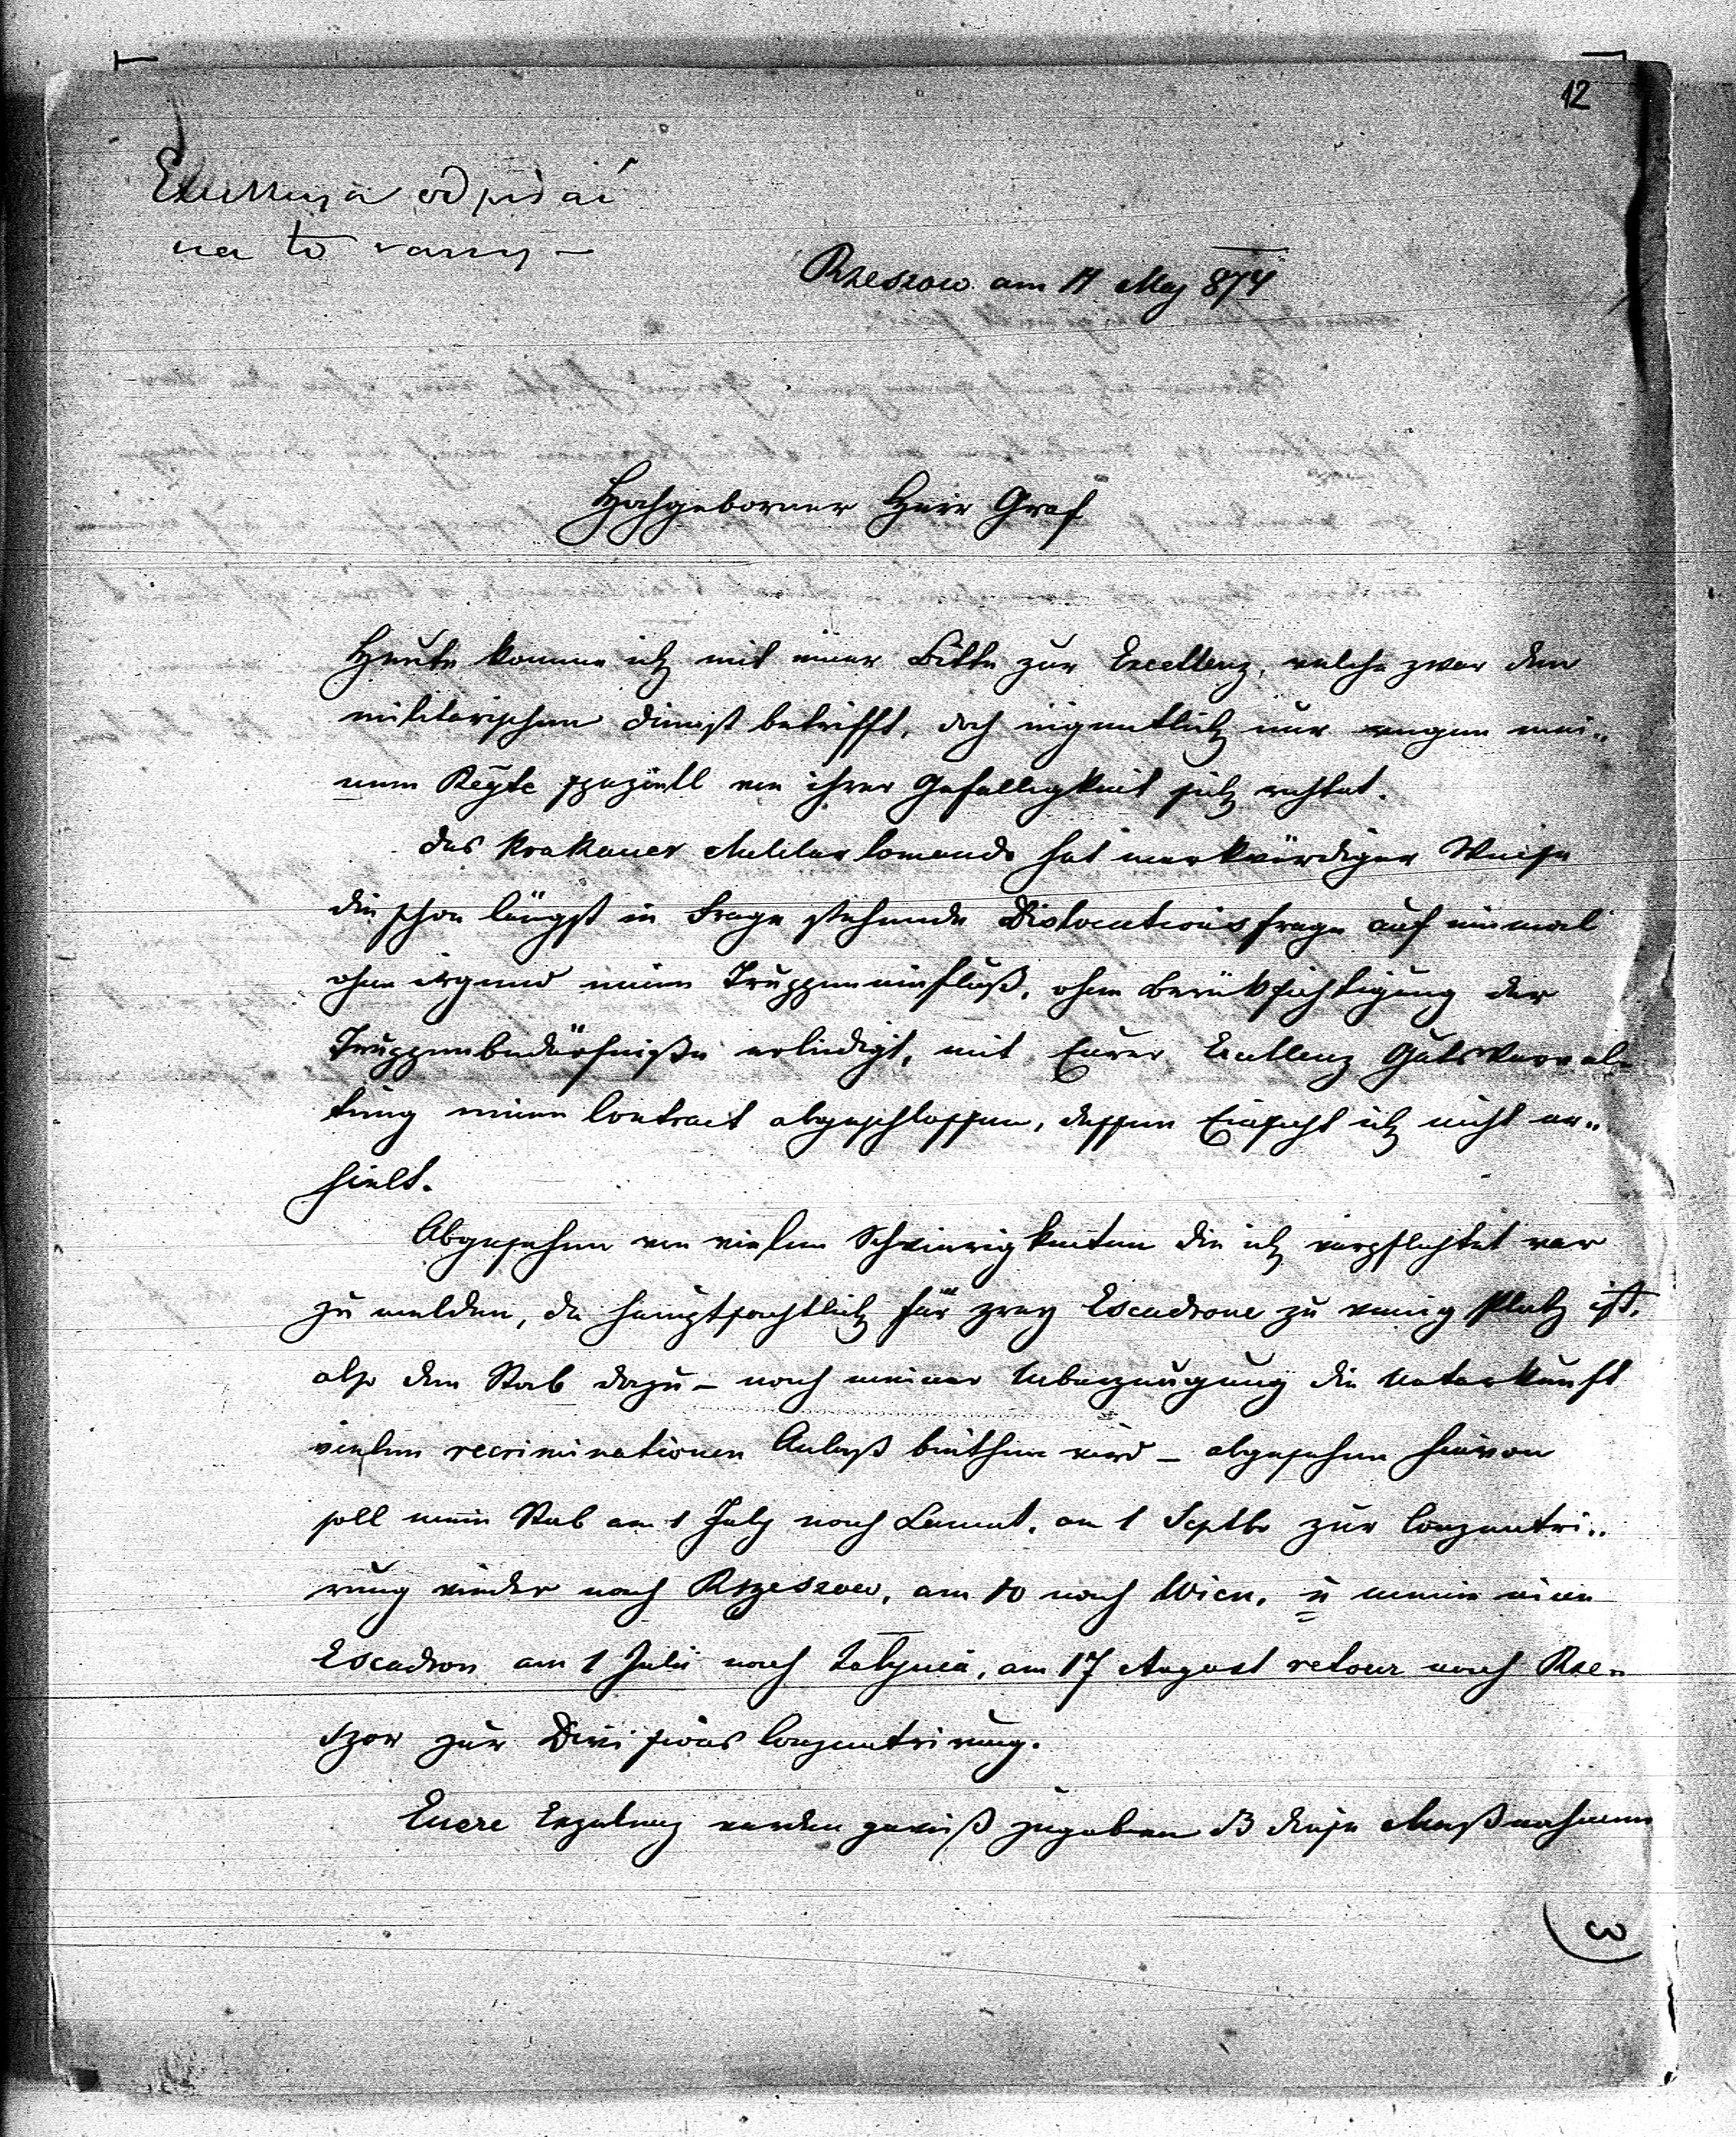 12
odpisać
na to
Rzeszow am 11 May 874
Hochgeborner Herr Graf
Heute komme ich mit einer Bitte zur Excellenz, welche zwar den
militärischen Dienst betrifft, doch eigentlich nur wegen mei„
nem speziell von ihrer Gefälligkeit sich
Das Krakauer Militar Comando hat merkwürdiger Weise
die schon längst in Frage stehende Dislocationsfrage auf einmal
ohne irgend einen Truppeneinfluß, ohne Berücksichtigung der
Truppenbedürfniße erledigt, mit Eurer Excellenz Gutsverwal-
tung einen Contract abgeschlossen, dessen Einsicht ich nicht er„
hielt.
Abgesehen von vielen Schwierigkeiten die ich verpflichtet war
zu melden, da hauptsachtlich für zwey Escadrone zu wenig Platz ist,
also dem Stab dazu – nach meiner Ueberzeugung die Unterkunft
vielen recriminationen Anlaß biethen wird – abgesehen hievon
soll mein Stab am 1 July nach Lancut, am 1 Septbr zur Conzentri„
rung wieder nach Rzeszow, am 10 nach Wien, u meine eine
Escadron am 1 Juli nach Zolynia, am 17 August retour nach Rze„
szow zur Divisions Conzentrirung.
Euere Exzelenz werden gewiß zugeben ß diese Maßnahmen